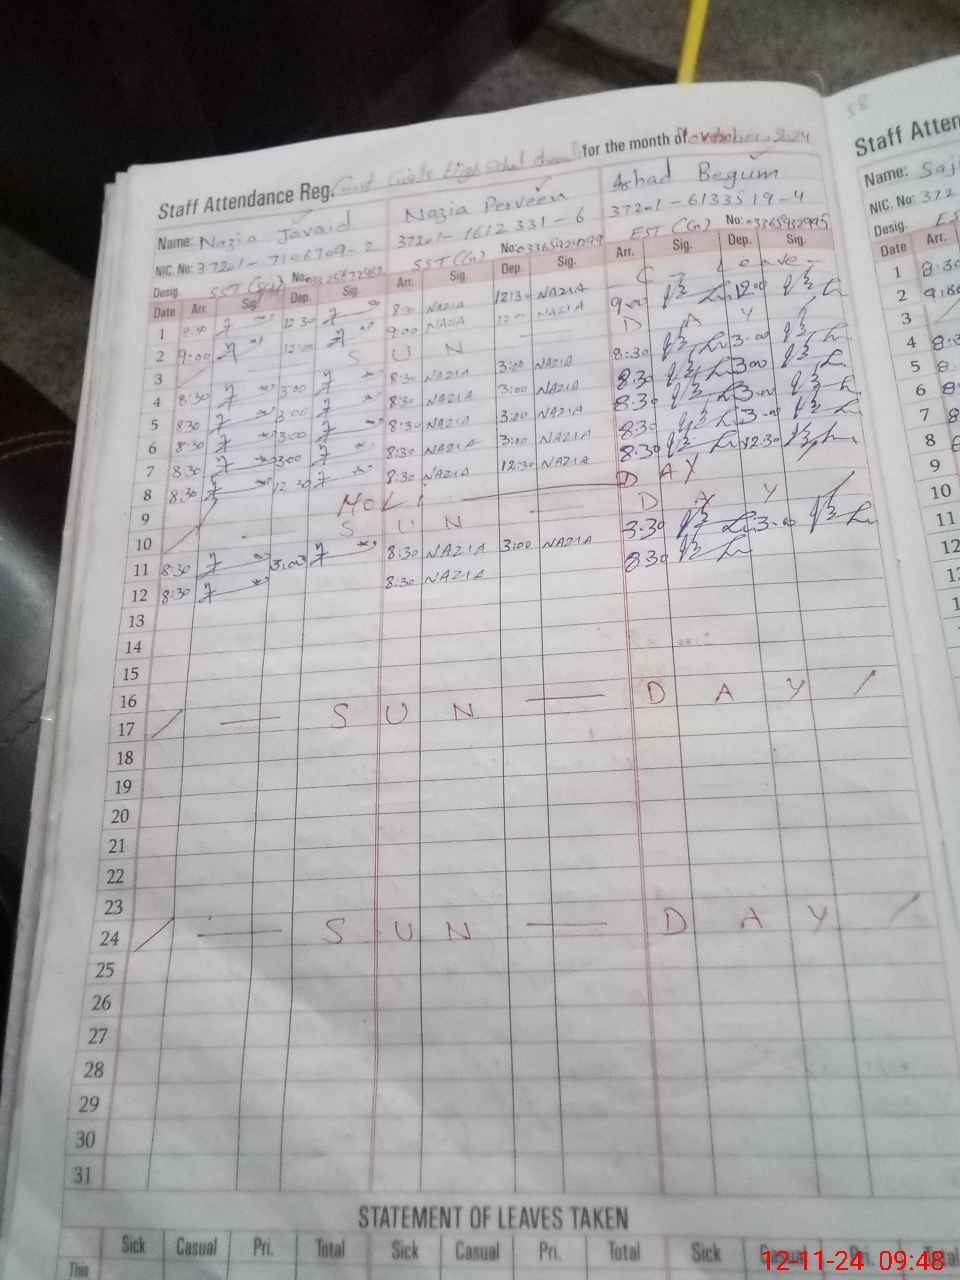 Staff Attendance Reg. Govt Girls High School for the month of November 2024
Name: Nazia Javaid Nazia Perveen Arshad Begum
NIC. No: 37201-7106709-2 37201-1612331-6 37201-6133519-4
Desig. SST No: SST (G) No: EST (G) No:
Date Arr. Sig. Dep. Sig. Arr. Sig. Dep. Sig. Arr. Sig. Dep. Sig.
1 8:30 12:30 8:30 NAZIA 12:30 NAZIA C - Leave -
2 9:00 12:00 9:00 NAZIA 12:00 NAZIA 9:00 12:00
3 S U N D A Y
4 8:30 3:00 8:30 NAZIA 3:00 NAZIA 8:30 3:00
5 8:30 3:00 8:30 NAZIA 3:00 NAZIA 8:30 3:00
6 8:30 3:00 8:30 NAZIA 3:00 NAZIA 8:30 3:00
7 8:30 3:00 8:30 NAZIA 3:00 NAZIA 8:30 3:00
8 8:30 12:30 8:30 NAZIA 12:30 NAZIA 8:30 12:30
9 HOLI DAY
10 S U N D A Y
11 8:30 3:00 8:30 NAZIA 3:00 NAZIA 3:30 3:00
12 8:30 8:30 NAZIA 8:30
13
14
15
16
17 S U N D A Y
18
19
20
21
22
23
24 S U N D A Y
25
26
27
28
29
30
31
STATEMENT OF LEAVES TAKEN
Sick Casual Pri. Total Sick Casual Pri. Total Sick Casual Pri. Total
This
Staff Atten
Name: Saj
NIC. No: 372
Desig. ES
Date Arr.
1 8:30
2 9:00
3
4 8:3
5 8
6 8
7 8
8 8
9
10
11
12
12-11-24 09:48